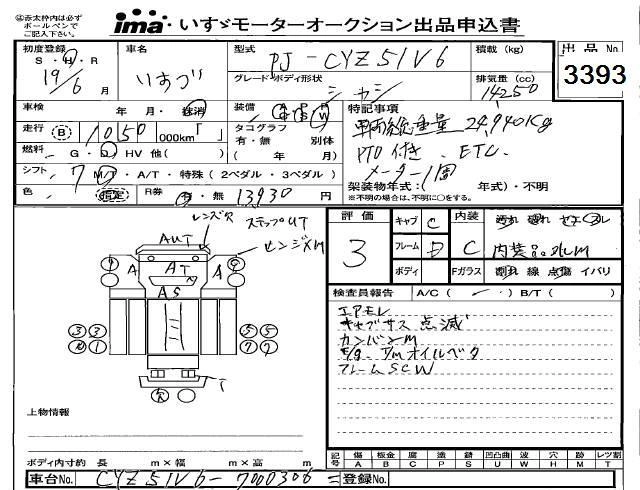 ㊟赤太枠内は必ず
ボールペンで
ご記入下さい。
ima いすゞモーターオークション出品申込書
初度登録 S・H・R 19/6 月
車名 いすゞ
型式 PJ-CYZ51V6
グレード・ボディ形状 シャシ
積載 (kg)
排気量 (cc) 14250
出品No. 3393
車検 年 月・抹消
装備 A P P W
特記事項
車両総重量 24,940Kg
PTO付き. ETC.
メーター1個
架装物年式( 年式)・不明
※不明の場合は、不明に○をする。
走行 B 1050 000km「 」
タコグラフ 有・無 別体
( 年 月)
燃料 G・D・HV 他( )
シフト 7 M/T・A/T・特殊(2ペダル・3ペダル)
色 指定 R券 有・無 13,930 円
レンズ欠 ステップUT
AUT センジズM
A AT A
AS
③ ③ ⑤ ⑤
⑦ ⑦
欠 T
評価 3
キャブ C
フレーム D
ボディ
内装 C
Fガラス
汚れ 破れ コゲ スレ
内装品外しM
割れ 線 点傷 イバリ
検査員報告 A/C( )・B/T( )
エアモレ
キャブサス 点滅
カンバンM
E/g. T/mオイルベタ
フレームSCW
上物情報
ボディ内寸約 長 m×幅 m×高 m
記号 傷 A 板金 B 腐 C 塗 P 錆 S 凹凸曲 U 波 W 穴 H 跡 M レツ割 T
車台No. CYZ51V6-7000306 = 登録No.